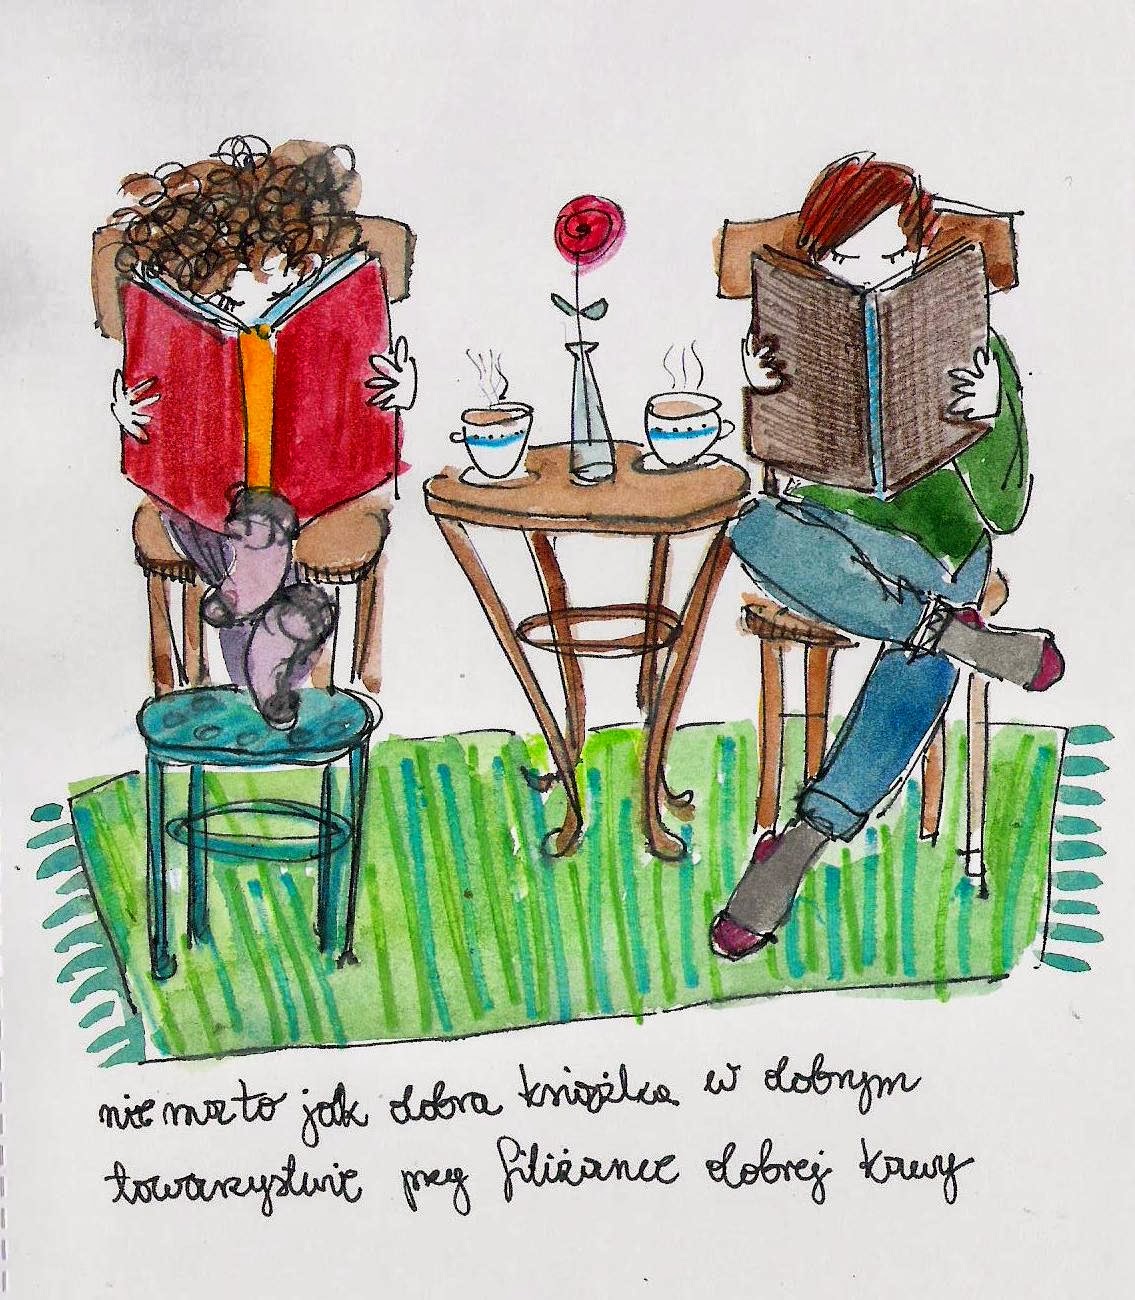 nie ma to jak dobra książka w dobrym
towarzystwie przy filiżance dobrej kawy